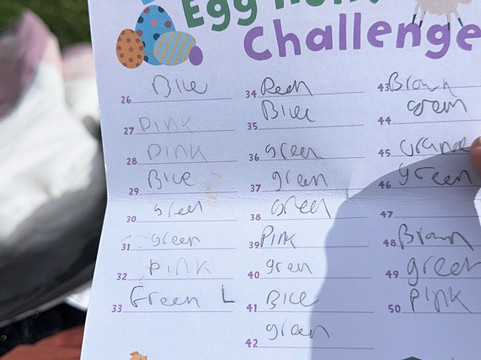 Egg Hunt
Challenge
26 Blue
27 Pink
28 Pink
29 Blue
30 green
31 green
32 Pink
33 Green L
34 Red
35 Blue
36 green
37 green
38 green
39 Pink
40 green
41 Blue
42 green
43 Brown
44 green
45 orange
46 green
47
48 Brown
49 green
50 Pink